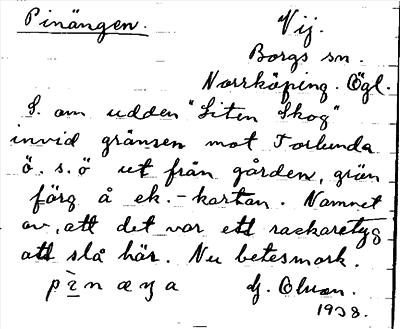 Pinängen.
Vij.
Borgs sn.
Norrköping. Ögl.
S. om udden "Liten Skog"
invid gränsen mot Torlunda
ö. s. ö ut från gården, grön
färg å ek.-kartan. Namnet
av, att det var ett rackaretyg
att slå här. Nu betesmark.
Olsson.
1938.